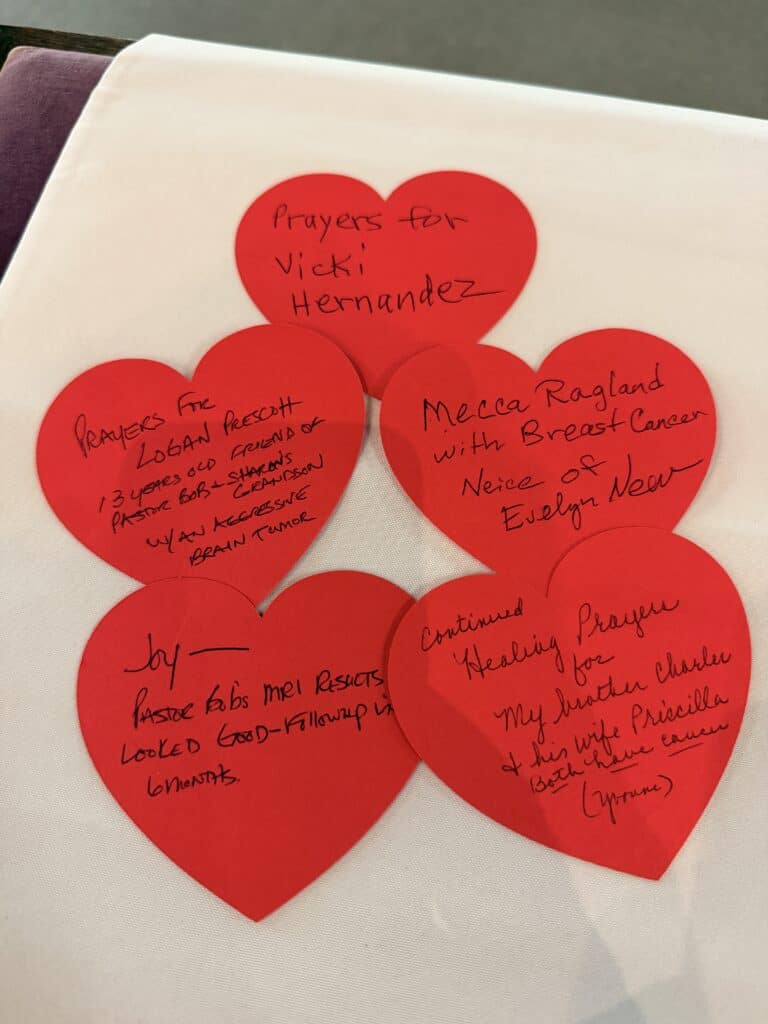 Prayers for
Vicki
Hernandez
PRAYERS FOR
LOGAN PRESCOTT
13 YEARS OLD FRIEND OF
PASTOR BOB & SHARON'S
GRANDSON
W/AN AGGRESSIVE
BRAIN TUMOR
Mecca Ragland
with Breast Cancer
Neice of
Evelyn New
Joy—
PASTOR BOB'S MRI RESULTS
LOOKED GOOD-FOLLOWUP IN
6 MONTHS.
Continued
Healing Prayers
for
My brother Charles
& his wife Priscilla
Both have cancer
(Yvonne)